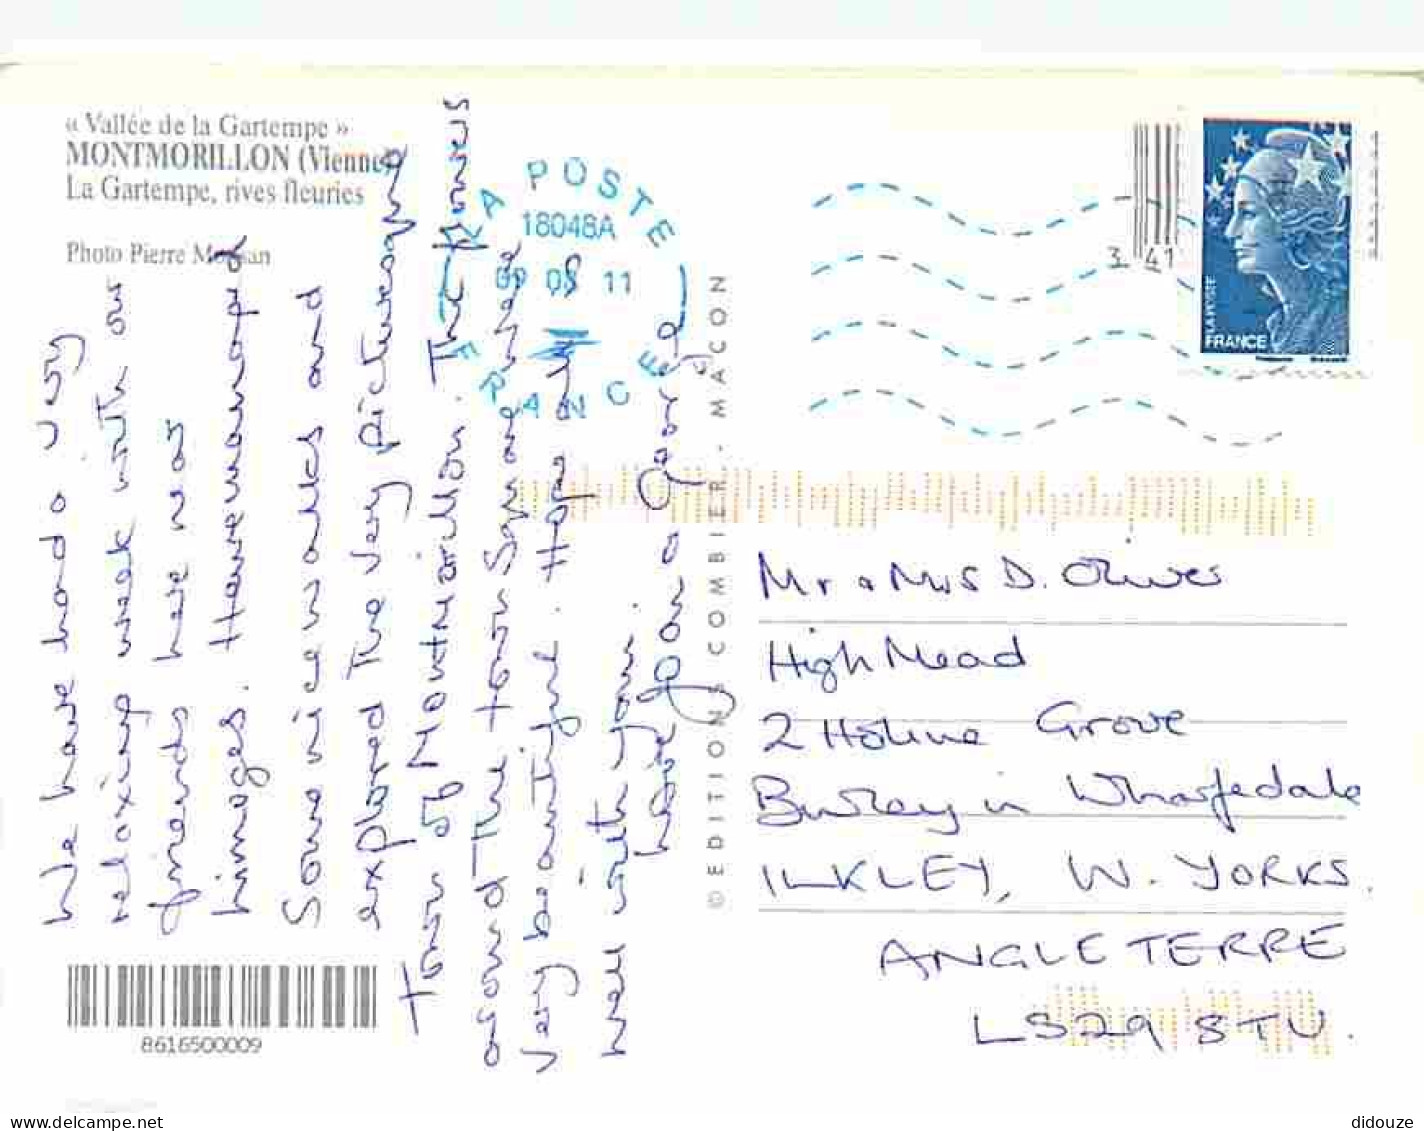 « Vallée de la Gartempe »
MONTMORILLON (Vienne)
La Gartempe, rives fleuries
Photo Pierre
We have had a very
relaxing week with our
friends here near
Limoges. Have managed
Some nice walks and
explored the very picturesque
Town of Montmorillon. The flowers
around the town Square where
very beautiful. Hope all is
well with you.
love Joan & George
8616500009
© EDITIONS COMBIER, MACON
LA POSTE
18048A
09 09 11
FRANCE
3 41
PHILAPOSTE
FRANCE
Mr & Mrs D. Oliver
High Mead
2 Holme Grove
Burley in Wharfedale
ILKLEY, W. YORKS.
ANGLETERRE
LS29
delcampe.net
didouze